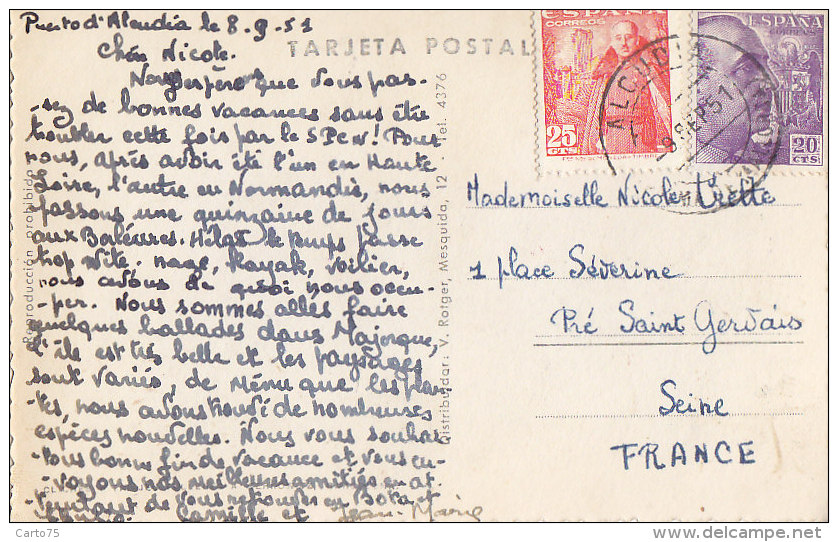 Puerto d'Alcudia le 8.9.51
Chère Nicole.
TARJETA POSTAL
Nous espérons que vous pas-
-sez de bonnes vacances sans être
troubler cette fois par le SPCN! Pour
nous, après avoir été l'un en Haute
Loire, l'autre en Normandie, nous
passons une quinzaine de jours
aux Baléares. Hélas le temps passe
trop vite. nage, kayak, voilier,
nous avons de quoi nous occu-
-per. Nous sommes allés faire
quelques ballades dans Majorque,
l'île est très belle et les paysages
sont variés, de même que les plan-
-tes, nous avons trouvé de nombreuses
espèces nouvelles. Nous vous souhai-
-tons bonne fin de vacance et vous en-
-voyons nos meilleures amitiés en at-
-tendant de vous retrouver en Bota et
Camille et Jean-Marie
Reproducción prohibida
Distribuidor: V. Rotger, Mesquida, 12 - Tel. 4376
ESPAÑA
CORREOS
25
CTS
ESPAÑA
CORREOS
20
CTS
ALCUDIA
-9 SEP 51
Mademoiselle Nicole
1 place Séverine
Pré Saint Gervais
Seine
FRANCE
Carto75
www.delcampe.net